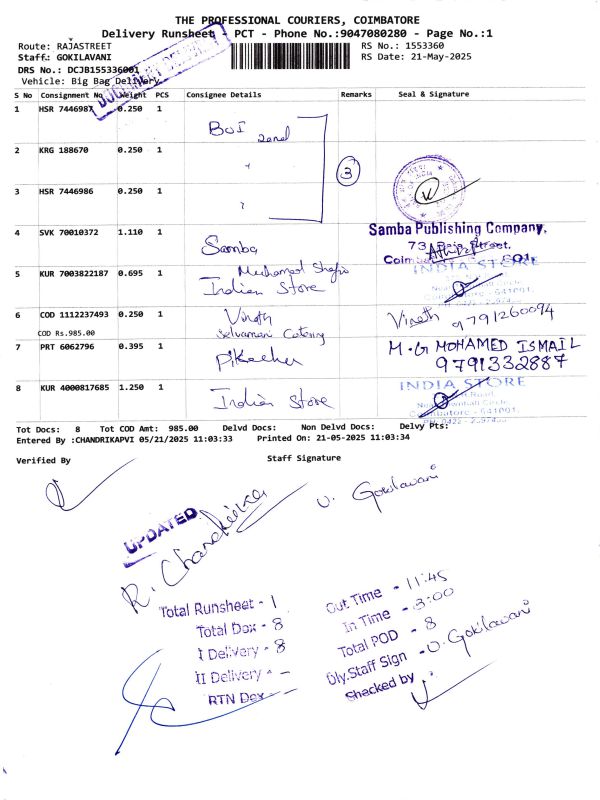 THE PROFESSIONAL COURIERS, COIMBATORE
Delivery Runsheet - PCT - Phone No.:9047080280 - Page No.:1
Route: RAJASTREET
RS No.: 1553360
Staff.: GOKILAVANI
RS Date: 21-May-2025
DRS No.: DCJB155336001
Vehicle: Big Bag Delivery
DOCUMENT DELIVERY
S No Consignment No Weight PCS Consignee Details Remarks Seal & Signature
1 HSR 7446987 0.250 1
BOI
2 KRG 188670 0.250 1
3
3 HSR 7446986 0.250 1
4 SVK 70010372 1.110 1 Samba
Samba Publishing Company,
73, Raja Street,
5 KUR 7003822187 0.695 1 Muhamed
Indian Store
INDIA STORE
6 COD 1112237493 0.250 1 Vinoth
COD Rs.985.00
Selvamani Catering
Vinoth 9791260094
7 PRT 6062796 0.395 1
M.G MOHAMED ISMAIL
9791332887
8 KUR 4000817685 1.250 1 Indian Store
INDIA STORE
Coimbatore - 641001.
Tot Docs: 8 Tot COD Amt: 985.00 Delvd Docs: Non Delvd Docs: Delvy Pts:
Entered By :CHANDRIKAPVI 05/21/2025 11:03:33 Printed On: 21-05-2025 11:03:34
Verified By Staff Signature
U. Gokilavani
UPDATED
R. Chandrika
Total Runsheet - 1
Total Dox - 8
I Delivery - 8
II Delivery - -
RTN Dox -
Out Time - 11:45
In Time - 3:00
Total POD - 8
Dly.Staff Sign - U. Gokilavani
Checked by